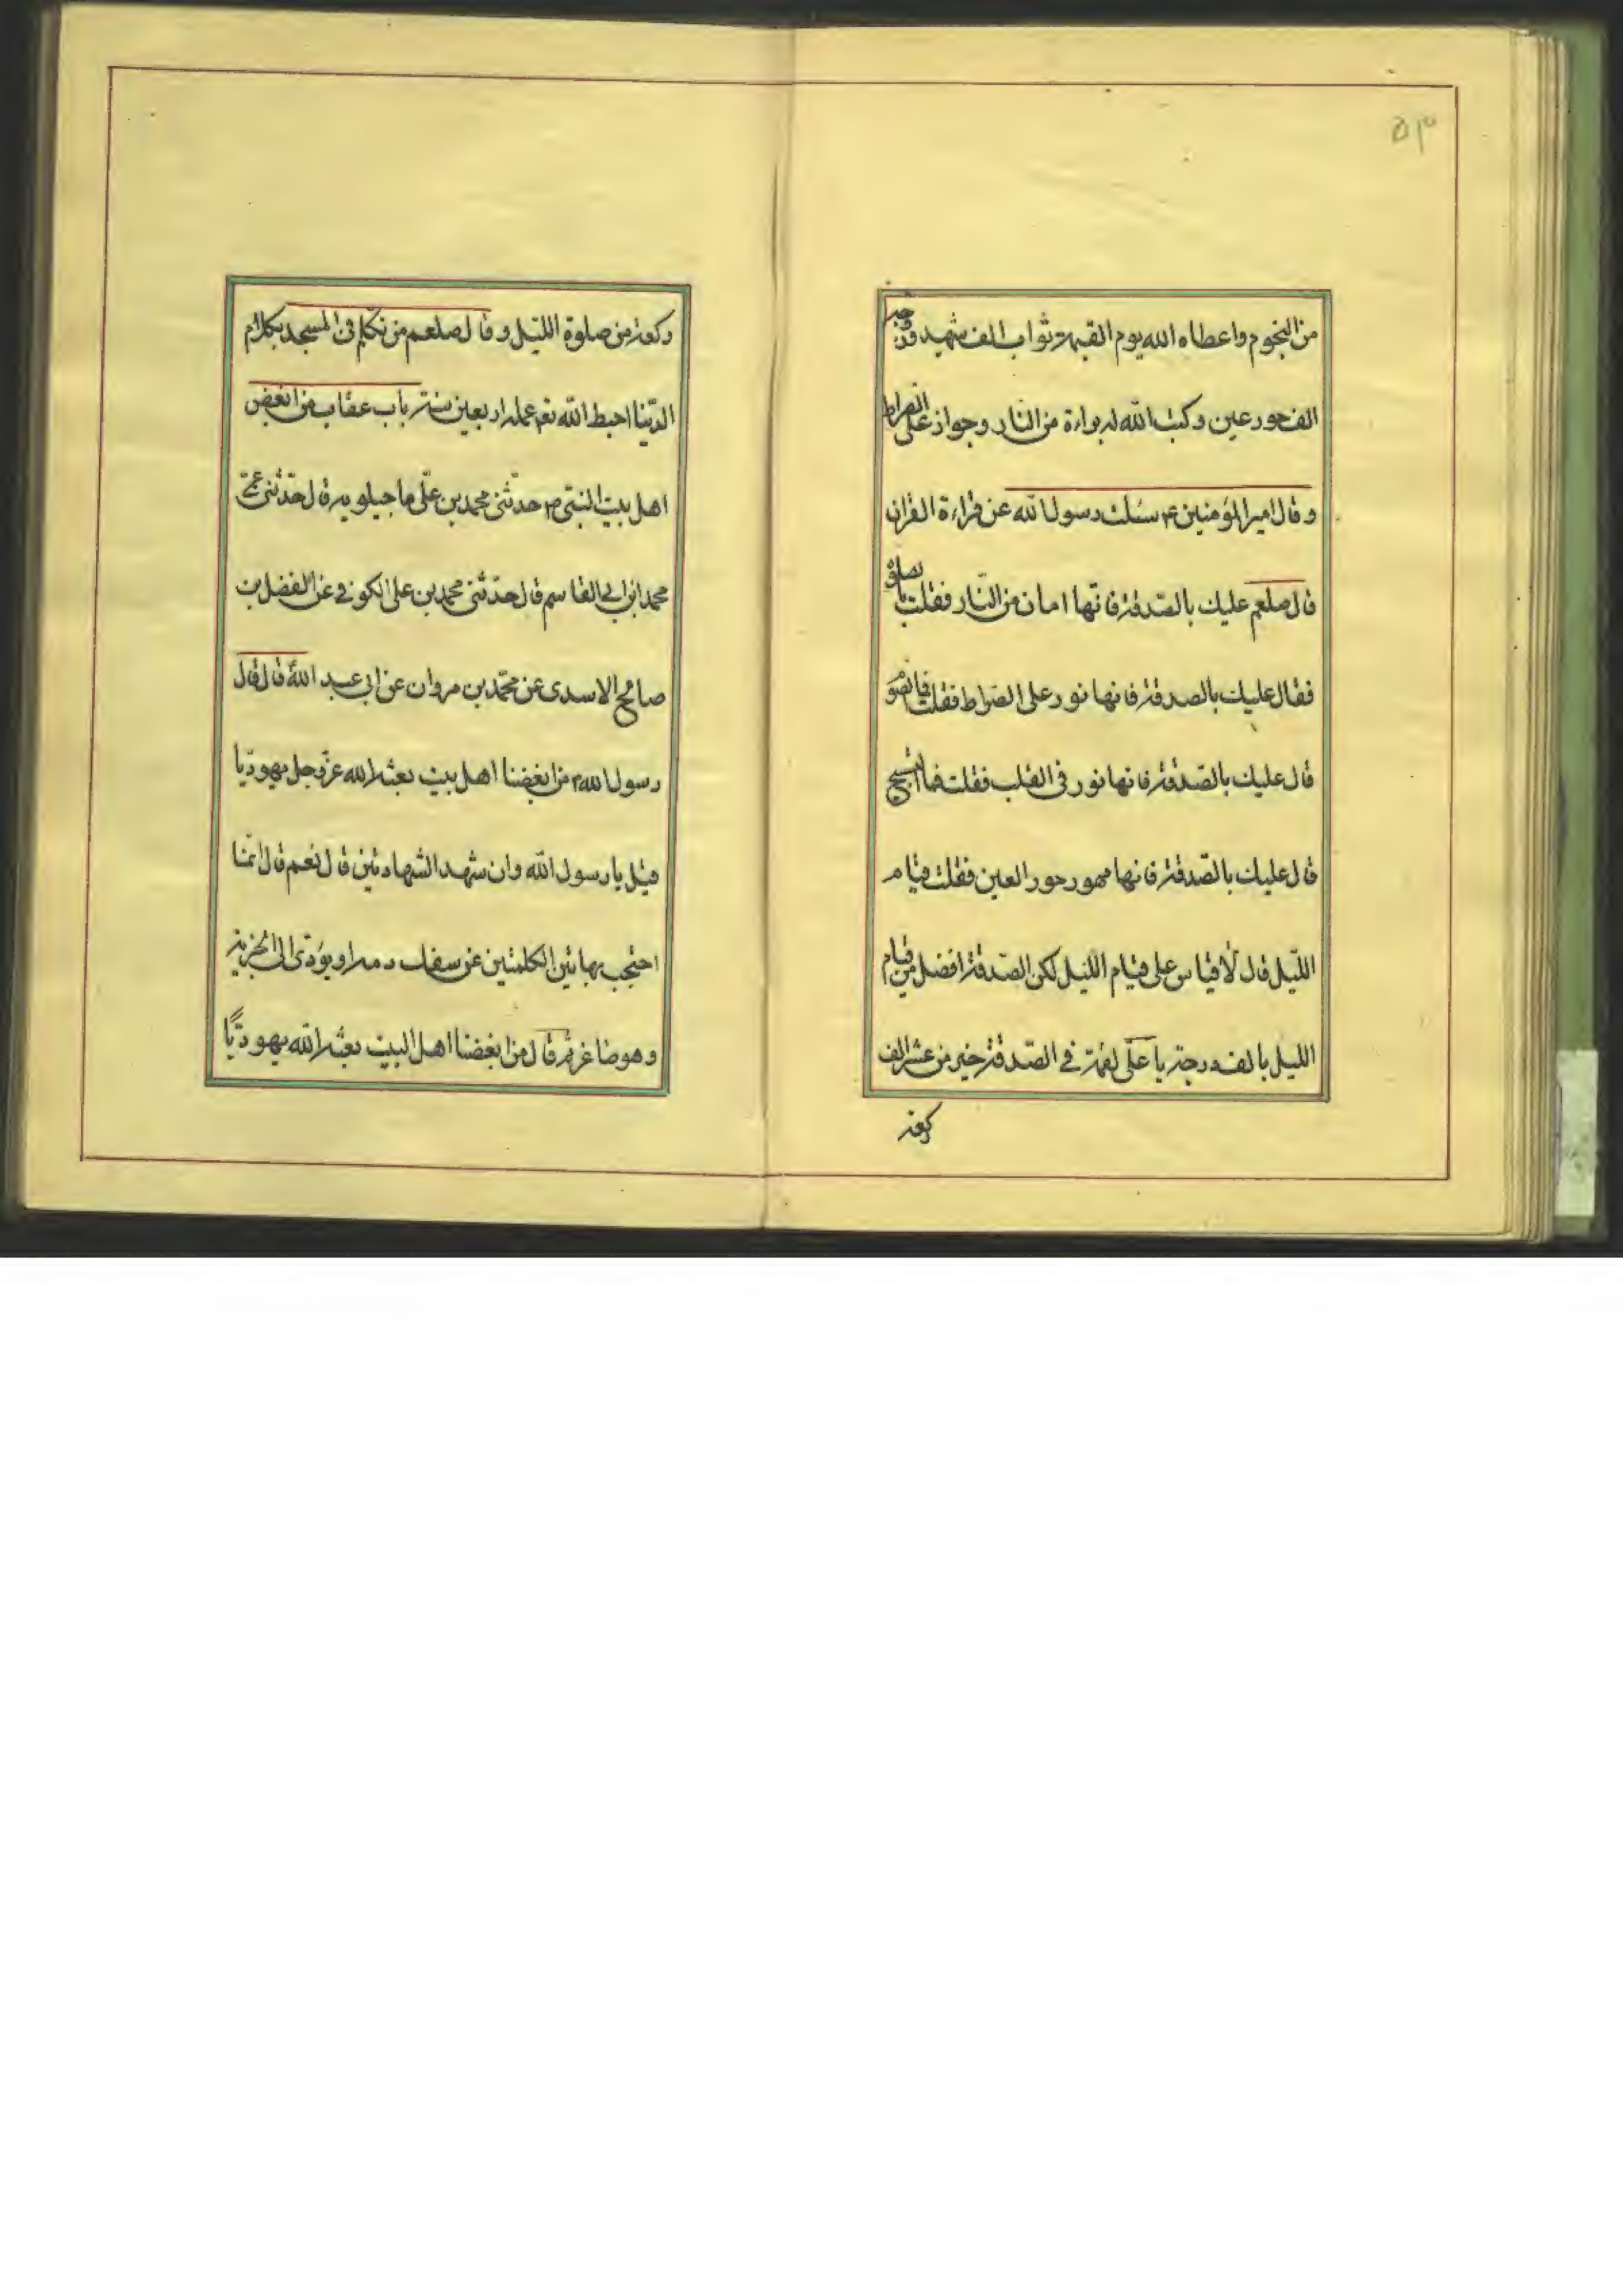 ۵۳
من النجوم واعطاه الله يوم القيمة ثواب الف شهيد وزوجه
الف حور عين وكتب الله له براءة من النار وجواز على الصراط
وقال امير المؤمنين ع سئلت رسول الله عن قراءة القران
قال صلعم عليك بالصّدقة فانها امان من النّار فقلت بالصلوة
فقال عليك بالصدقة فانها نور على الصراط فقلت فالصوم
قال عليك بالصّدقة فانها نور فى القلب فقلت فما التسبيح
قال عليك بالصّدقة فانها مهور حور العين فقلت قيام
اللّيل قال لا قياس على قيام الليل لكن الصّدقة افضل من قيام
الليل بالف درجة يا علّى لقمة في الصّدقة خير من عشر الف
ركعة
ركعة من صلوة اللّيل وقال صلعم من تكلم فى المسجد بكلام
الدّنيا احبط الله تعم عمله اربعين سنة باب عقاب من ابغض
اهل بيت النبّى ص حدثنى محمد بن علّى ماجيلويه قال حدّثنى عمّى
محمد ابن ابى القاسم قال حدّثنى محمد بن على الكوفي عن الفضل بن
صالح الاسدى عن محمّد بن مروان عن ابى عبد الله قال قال
رسول الله ص من ابغضنا اهل بيت بعثه الله عزّ وجل يهوديّا
قيل يا رسول الله وان شهد الشهادتين قال نعم قال انمّا
احتجب بهاتين الكلمتين عن سفك دمه او يؤدّى الى الجزية
وهو صاغر ثم قال من ابغضنا اهل البيت بعثه الله يهوديًّا